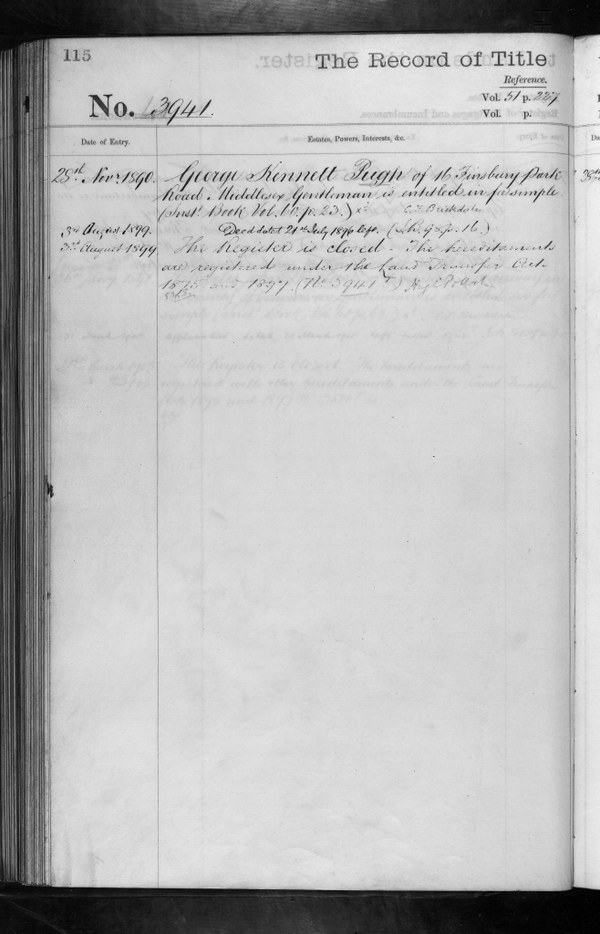 115
The Record of Title
Reference.
No. 3941.
Vol. 51 p. 227
Vol. p.
Date of Entry.
Estates, Powers, Interests, &c.
28th Novr 1890. George Kennett Pugh of 16 Finsbury Park
Road Middlesex Gentleman is entitled in fee simple
(Inst. Book Vol. 16. p. 23.) C.F. Brickdale
3rd August 1899. Deed dated 21st July 1896
3rd August 1899 The Register is closed. The hereditaments
are registered under the Land Transfer Acts
1875 and 1897. (No. 3941)